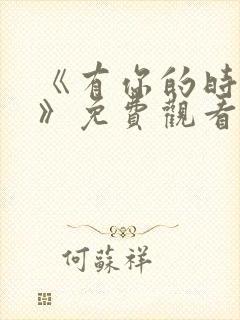 《有你的時
》免費觀看
何蘇祥